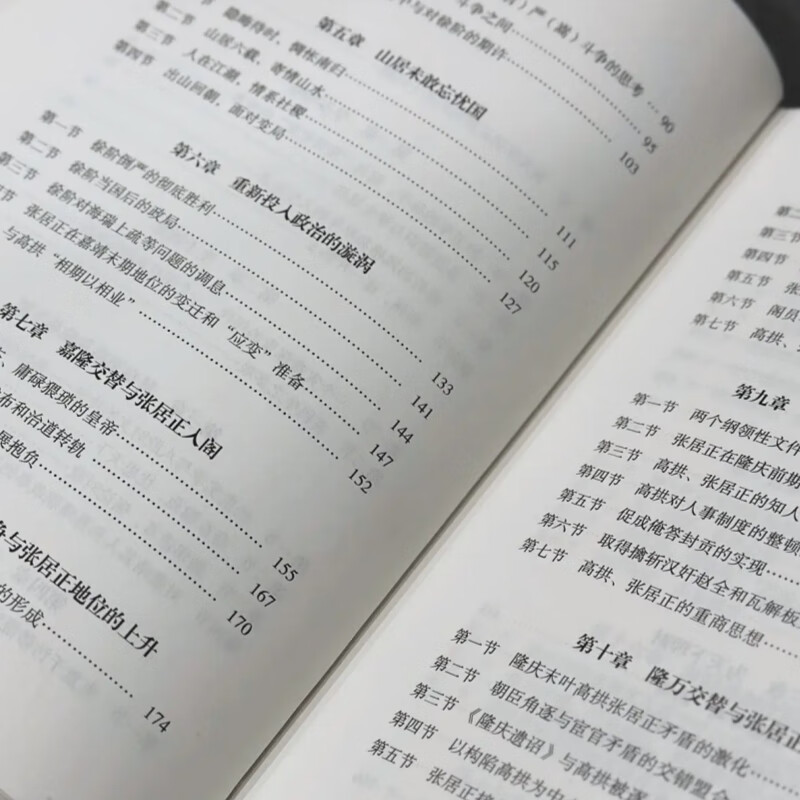 严（嵩）斗争的思考 … 90
与对徐阶的期许 95
斗争之间 103
第五章 山居未敢忘忧国
隐晦待时，惆怅南归 111
第二节 山居六载，寄情山水 115
第三节 人在江湖，情系社稷 120
第四节 出山回朝，面对变局 127
第六章 重新投入政治的漩涡
第一节 徐阶倒严的彻底胜利 133
第二节 徐阶当国后的政局 141
第三节 徐阶对海瑞上疏等问题的调息 144
节 张居正在嘉靖末期地位的变迁和“应变”准备 147
与高拱“相期以相业” 152
第七章 嘉隆交替与张居正入阁
、庸碌猥琐的皇帝 155
布和治道转轨 167
抱负 170
争与张居正地位的上升
的形成 174
第二
第三节
第四节
第五节 张
第六节 阁员
第七节 高拱、
第九章
第一节 两个纲领性文件
第二节 张居正在隆庆前期
第三节 高拱、张居正的知人
第四节 高拱对人事制度的整顿
第五节 促成俺答封贡的实现
第六节 取得擒斩汉奸赵全和瓦解板
第七节 高拱、张居正的重商思想
第十章 隆万交替与张居正
第一节 隆庆末叶高拱张居正矛盾的激化
第二节 朝臣角逐与宦官矛盾的交错盟合
第三节 《隆庆遗诏》与高拱被逐
第四节 以构陷高拱为中
第五节 张居正接